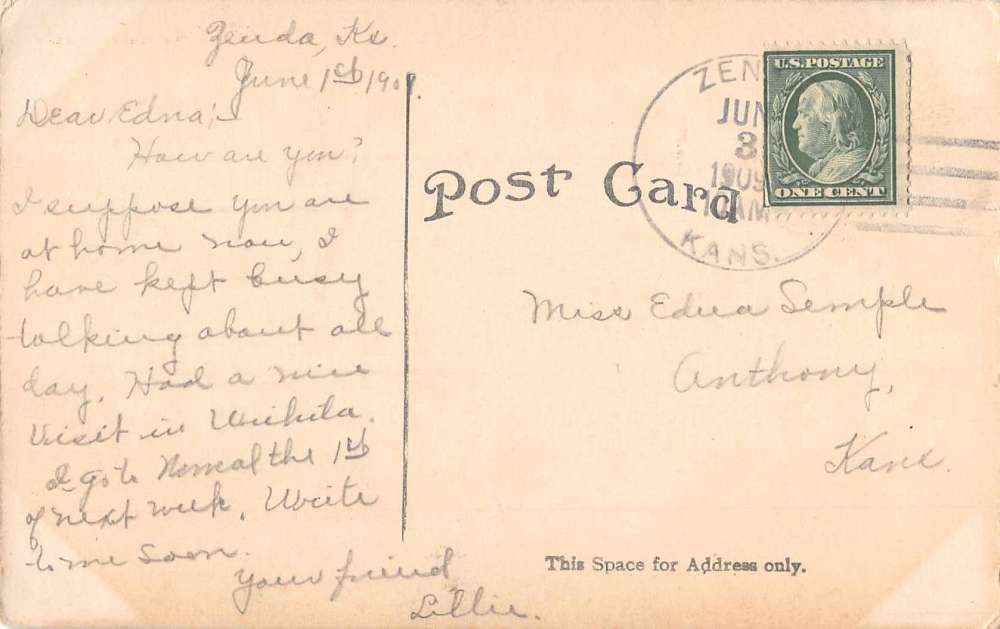 Zenda, Ks.
June 1st 1909.
Dear Edna;
How are you?
I suppose you are
at home now, I
have kept busy
talking about all
day. Had a nice
visit in Wichita.
I go to Normal the 1st
of next week. Write
to me soon.
Your friend
Lillie.
Post Card
ZEN
JUN
3
1909
10AM
KANS.
U.S. POSTAGE
ONE CENT
Miss Edna Semple
Anthony,
Kans.
This Space for Address only.